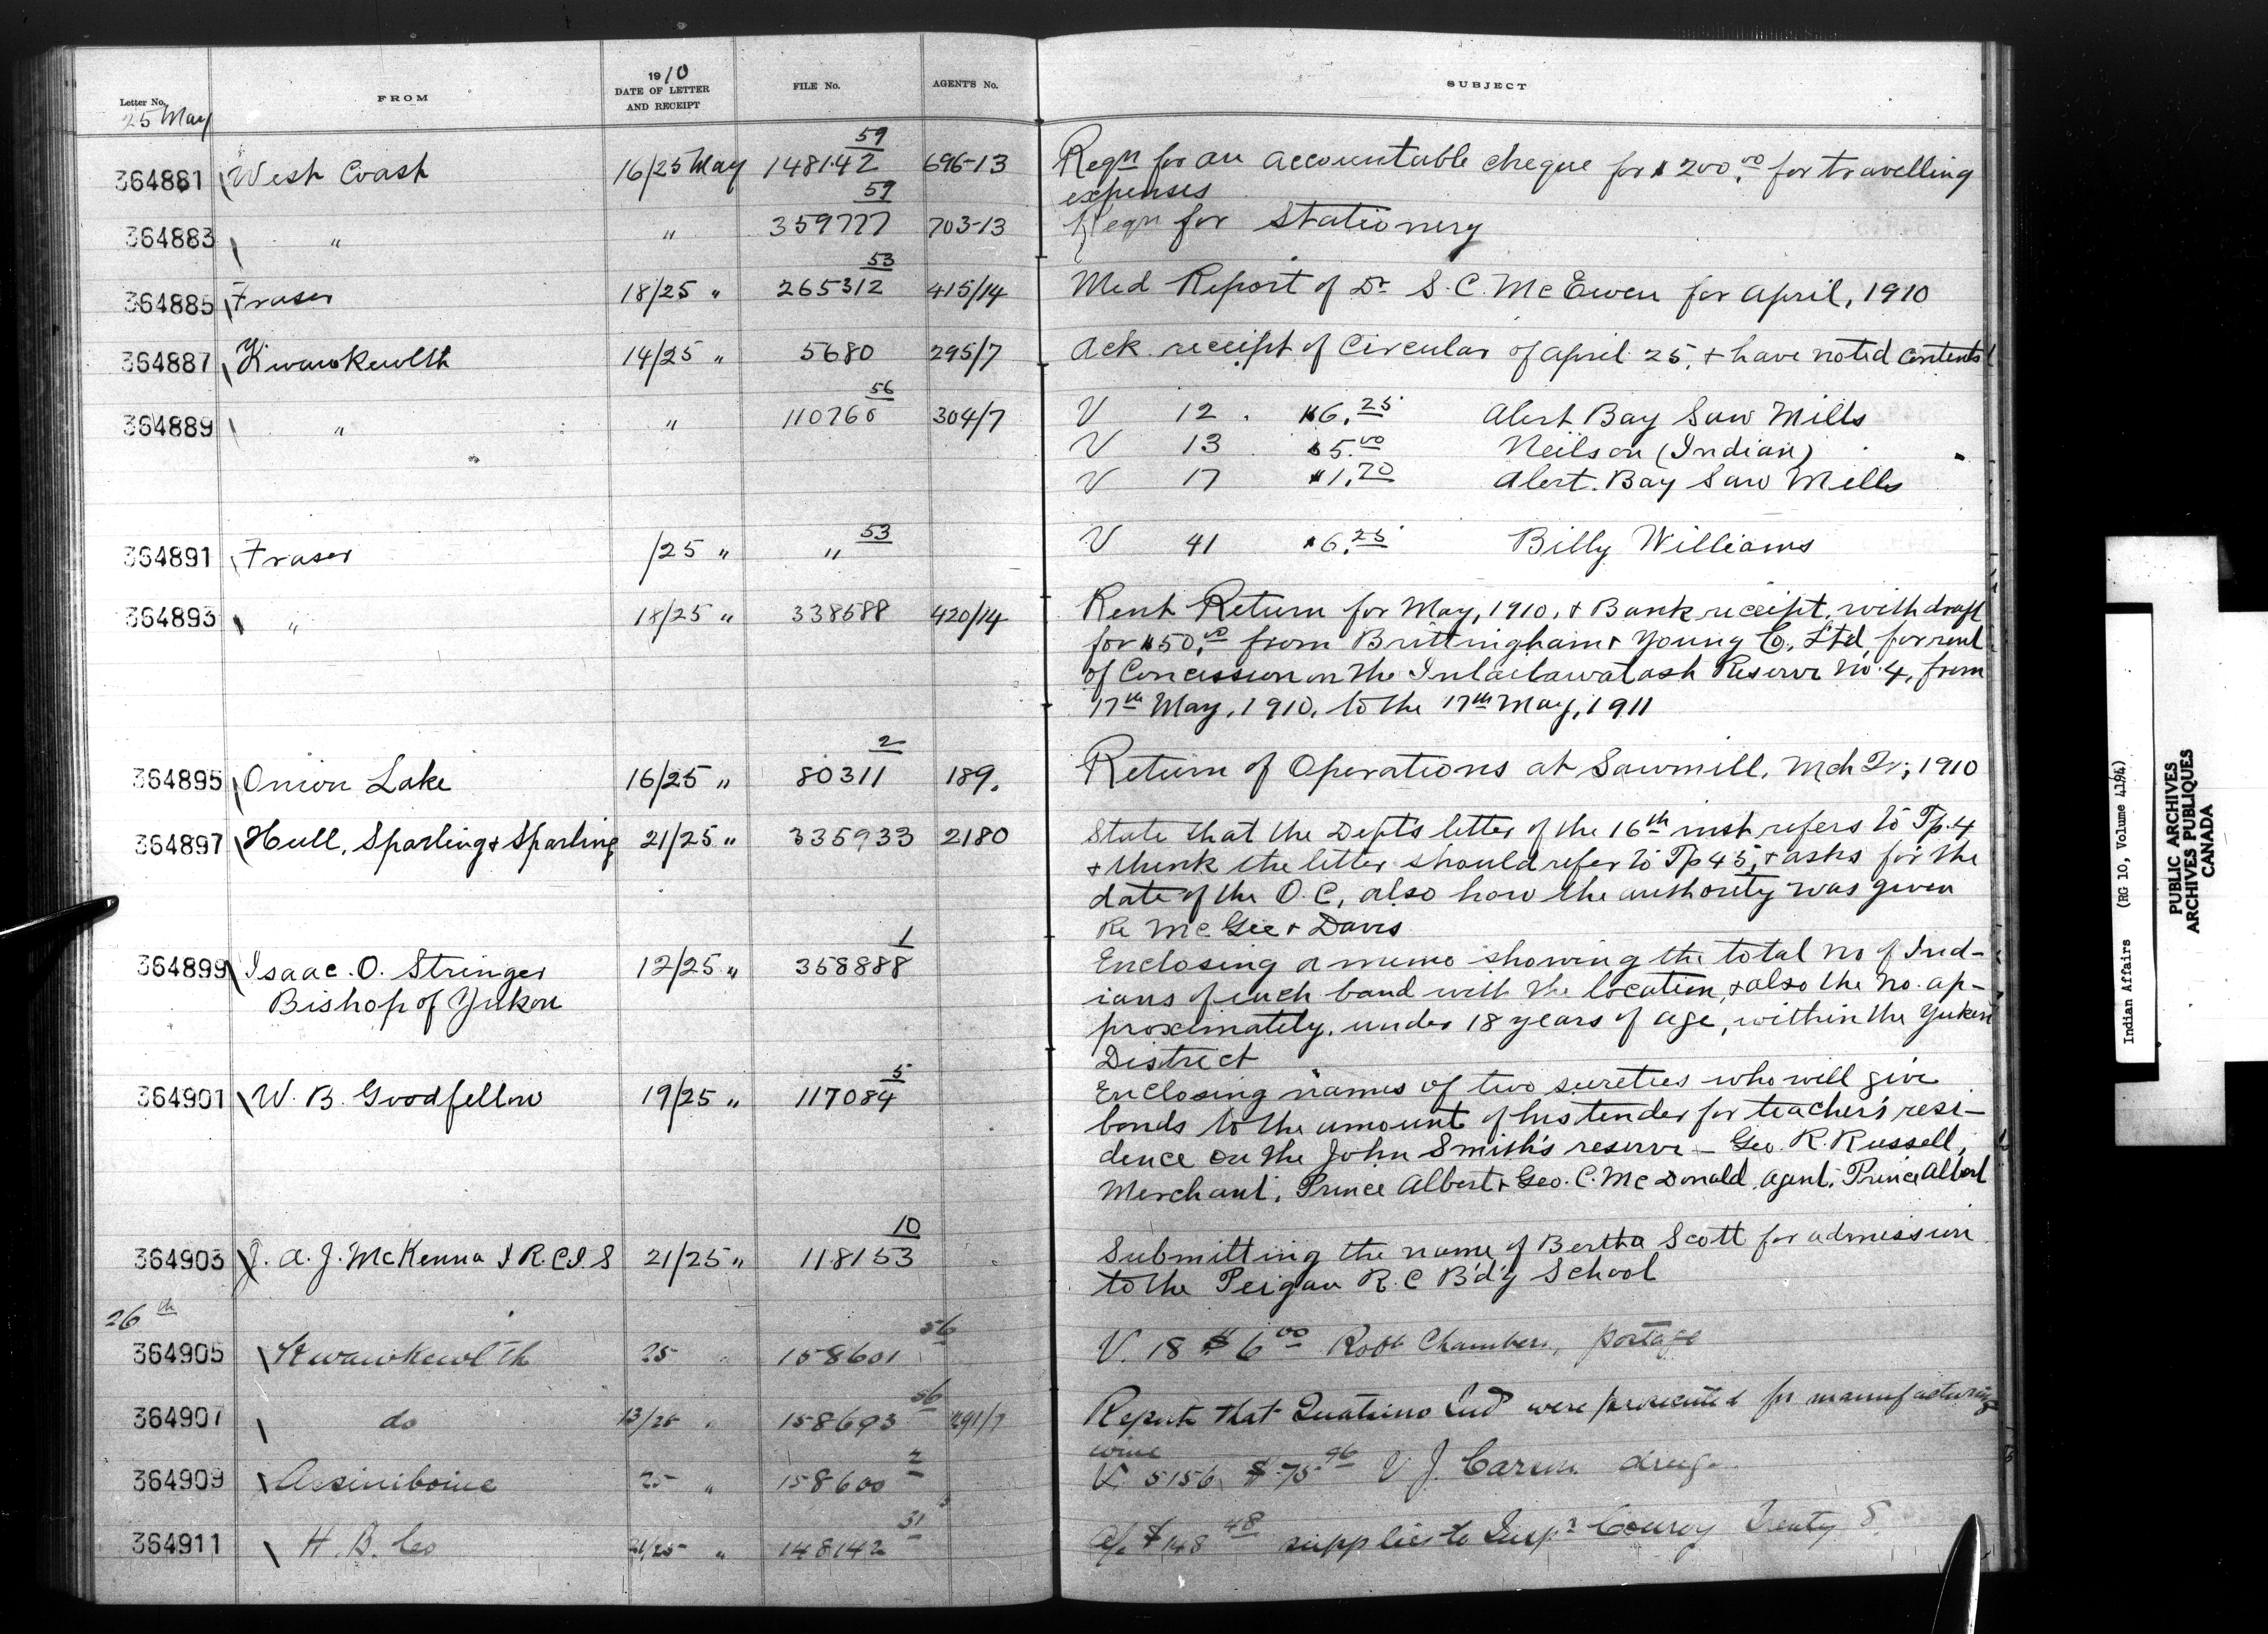 Letter No. FROM 1910 DATE OF LETTER AND RECEIPT FILE No. AGENT'S No. SUBJECT
25 May
364881 West Coast 16/25 May 148142 59 696-13 Reqn for an accountable cheque for $200.00 for travelling
expenses
364883 " " 359777 59 703-13 Reqn for Stationery
364885 Fraser 18/25 " 265312 53 415/14 Med Report of Dr S. C. McEwen for April, 1910
364887 Kwawkewlth 14/25 " 5680 295/7 Ack receipt of Circular of April 25, + have noted contents
364889 " " 110760 56 304/7 V 12 . $6.25 Alert Bay Saw Mills
V 13 $5.00 Neilson (Indian)
V 17 $1.70 Alert. Bay Saw Mills
364891 Fraser /25 " " 53 V 41 $6.25 Billy Williams
364893 " 18/25 " 338588 420/14 Rent Return for May, 1910, + Bank receipt, with draft
for $50.00 from Brittingham + Young Co., Ltd, for rent
of Concession on the Inlailawatash Reserve No. 4, from
17th May, 1910, to the 17th May, 1911
364895 Onion Lake 16/25 " 80311 2 189. Return of Operations at Sawmill, Mch Qr, 1910
364897 Hull, Sparling + Sparling 21/25 " 335933 2180 State that the Dept's letter of the 16th inst refers to Tp. 4
+ think the letter should refer to Tp 45, + asks for the
date of the O. C, also how the authority was given
Re McGee + Davis
364899 Isaac. O. Stringer 12/25 " 358888 1 Enclosing a memo showing the total no of Ind-
Bishop of Yukon ians of each band with the location, + also the no. ap-
proximately, under 18 years of age, within the Yukon
District
364901 W. B. Goodfellow 19/25 " 117084 5 Enclosing names of two sureties who will give
bonds to the amount of his tender for teacher's resi-
dence on the John Smith's reserve - Geo. R. Russell,
Merchant, Prince Albert + Geo. C. McDonald, agent, Prince Albert
364903 J. A. J. McKenna I R. C. I. S 21/25 " 118153 10 Submitting the name of Bertha Scott for admission
to the Peigan R. C B'd'g School
26th
364905 Kwawkewlth 25 " 158601 56 V. 18 $6.00 Robt Chambers, postage
364907 do 13/25 " 158693 56 291/7 Reports that Quatsino Ind were prosecuted for manufacturing
wine
364909 Assiniboine 25 " 158600 2 V. 5156 $75.96 V J. Carson drugs
364911 H. B. Co 21/25 " 148142 31 a/c $148.48 supplies to Inspr Conroy Treaty 8
Indian Affairs (RG 10, Volume 4194)
PUBLIC ARCHIVES
ARCHIVES PUBLIQUES
CANADA